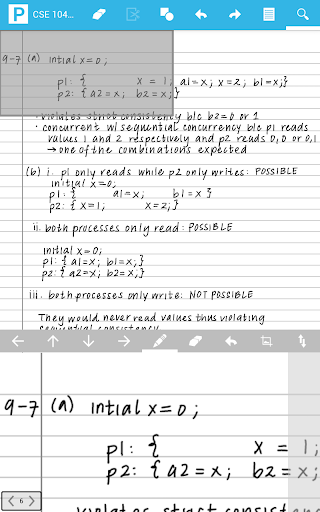 P CSE 104...
9-7 (a) intial x=0;
p1: { x = 1; a1=x; x=2; b1=x;}
p2: {a2=x; b2=x;}
· violates strict consistency b/c b2=0 or 1
· concurrent w/ sequential concurrency b/c p1 reads
values 1 and 2 respectively and p2 reads 0,0 or 0,1
→ one of the combinations expected
(b) i. p1 only reads while p2 only writes: POSSIBLE
initial x=0;
p1: { a1=x; b1=x }
p2: { x=1; x=2;}
ii. both processes only read: POSSIBLE
initial x=0;
p1: { a1=x; b1=x;}
p2: { a2=x; b2=x;}
iii. both processes only write: NOT POSSIBLE
They would never read values thus violating
sequential consistency
9-7 (a) intial x=0;
p1: { x = 1;
p2: { a2=x; b2=x;
violates strict consist
6